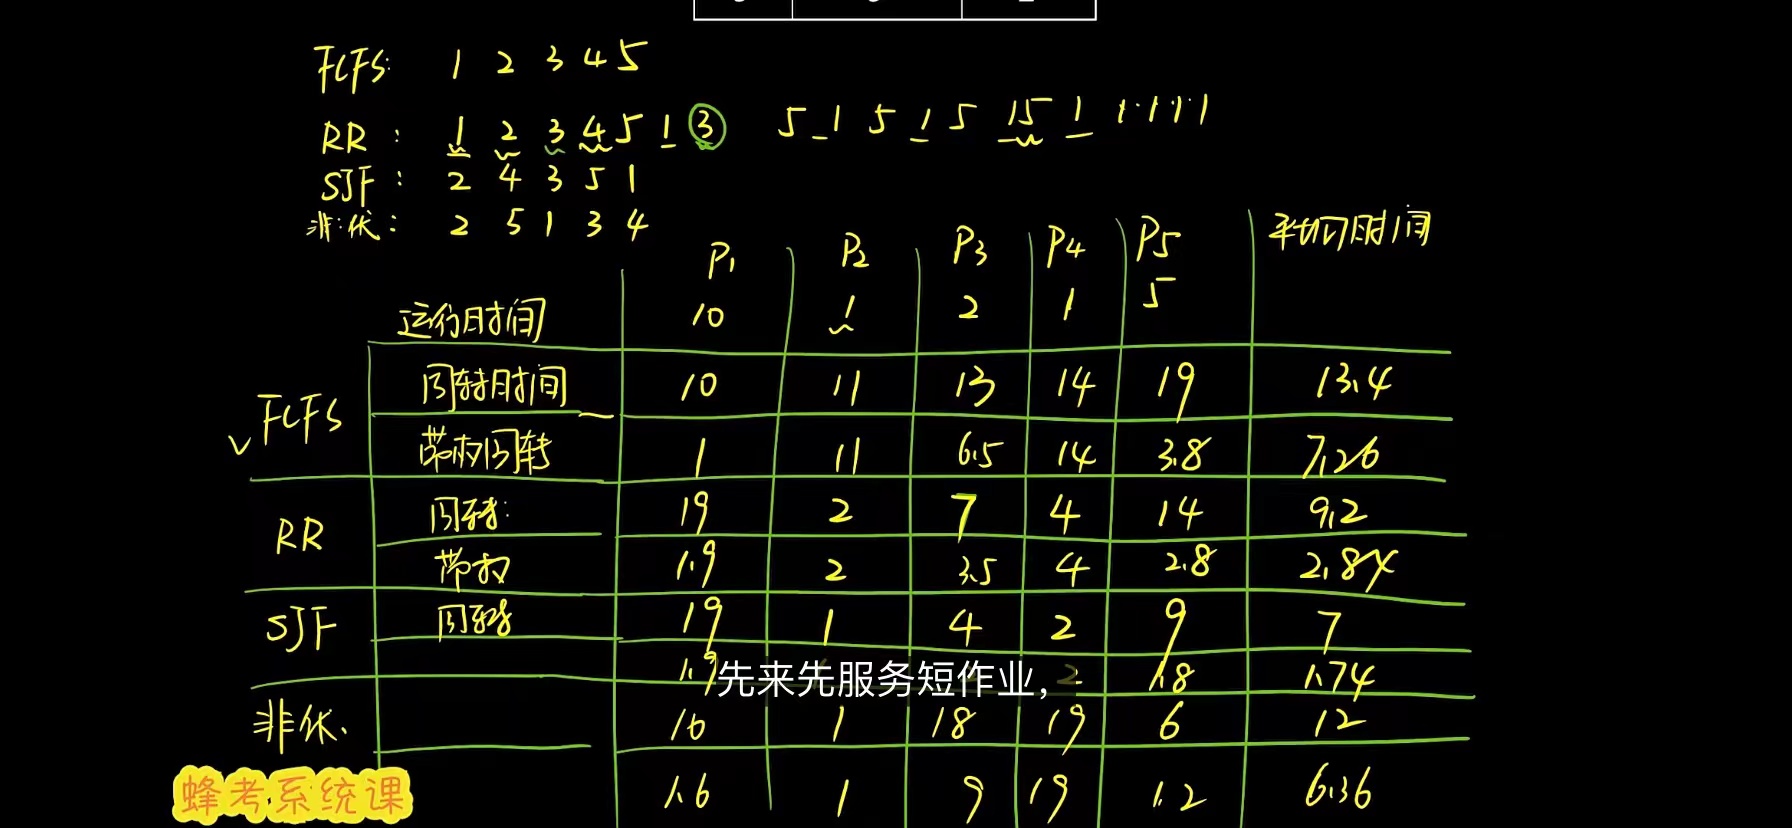 FCFS: 1 2 3 4 5
RR: 1 2 3 4 5 1 3 5 1 5 1 5 15 1 1 1 1 1
SJF: 2 4 3 5 1
非优: 2 5 1 3 4
P1 P2 P3 P4 P5 平均周转时间
运行时间 10 1 2 1 5
FCFS 周转时间 10 11 13 14 19 13.4
带权周转 1 11 6.5 14 3.8 7.26
RR 周转: 19 2 7 4 14 9.2
带权 1.9 2 3.5 4 2.8 2.84
SJF 周转 19 1 4 2 9 7
1.9 2 1.8 1.74
先来先服务短作业,
非优. 16 1 18 19 6 12
1.6 1 9 19 1.2 6.36
蜂考系统课